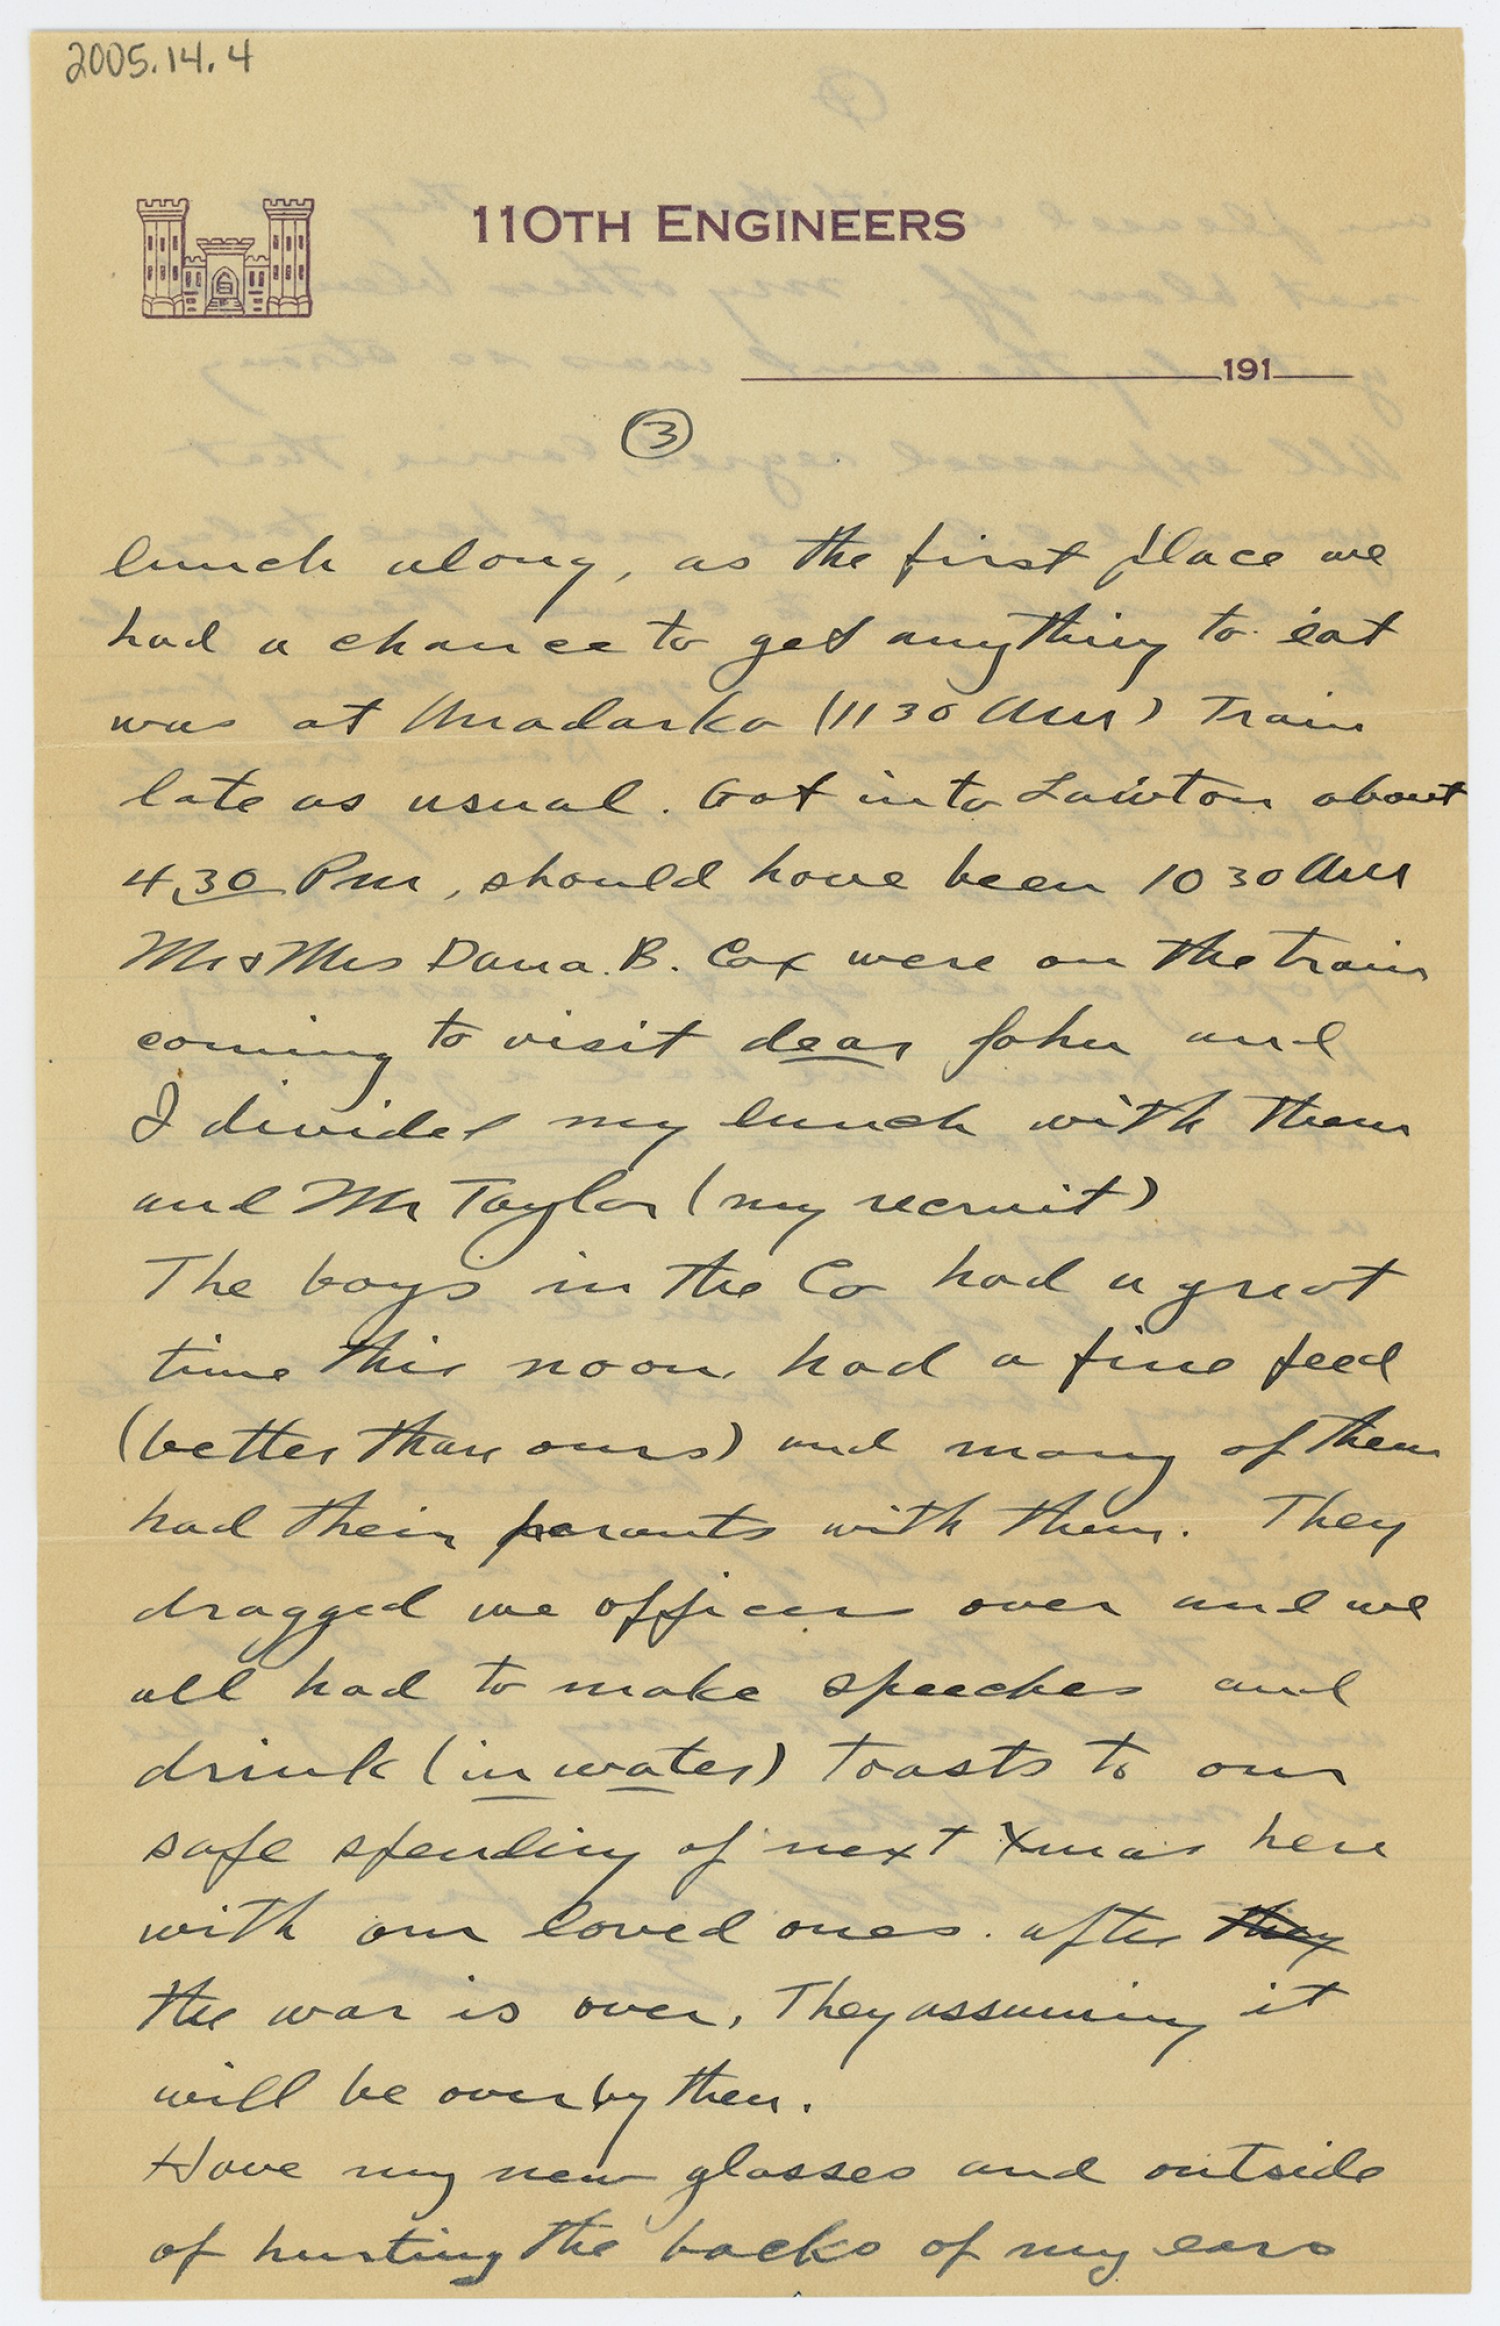 2005.14.4
110TH ENGINEERS
191
3
lunch along, as the first place we
had a chance to get anything to eat
was at Anadarko (11 30 AM) Train
late as usual. Got into Lawton about
4,30 PM, should have been 10 30 AM
Mr & Mrs Dana. B. Cox were on the train
coming to visit dear John and
I divided my lunch with them
and Mr Taylor (my recruit)
The boys in the Co had a great
time this noon, had a fine feed
(better than ours) and many of them
had their parents with them. They
dragged we officers over and we
all had to make speeches and
drink (in water) toasts to our
safe spending of next Xmas here
with our loved ones. after they
the war is over, They assuming it
will be over by then.
Have my new glasses and outside
of hurting the backs of my ears